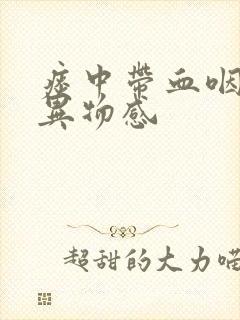 痰中带血咽
異物感
超甜的大力喵